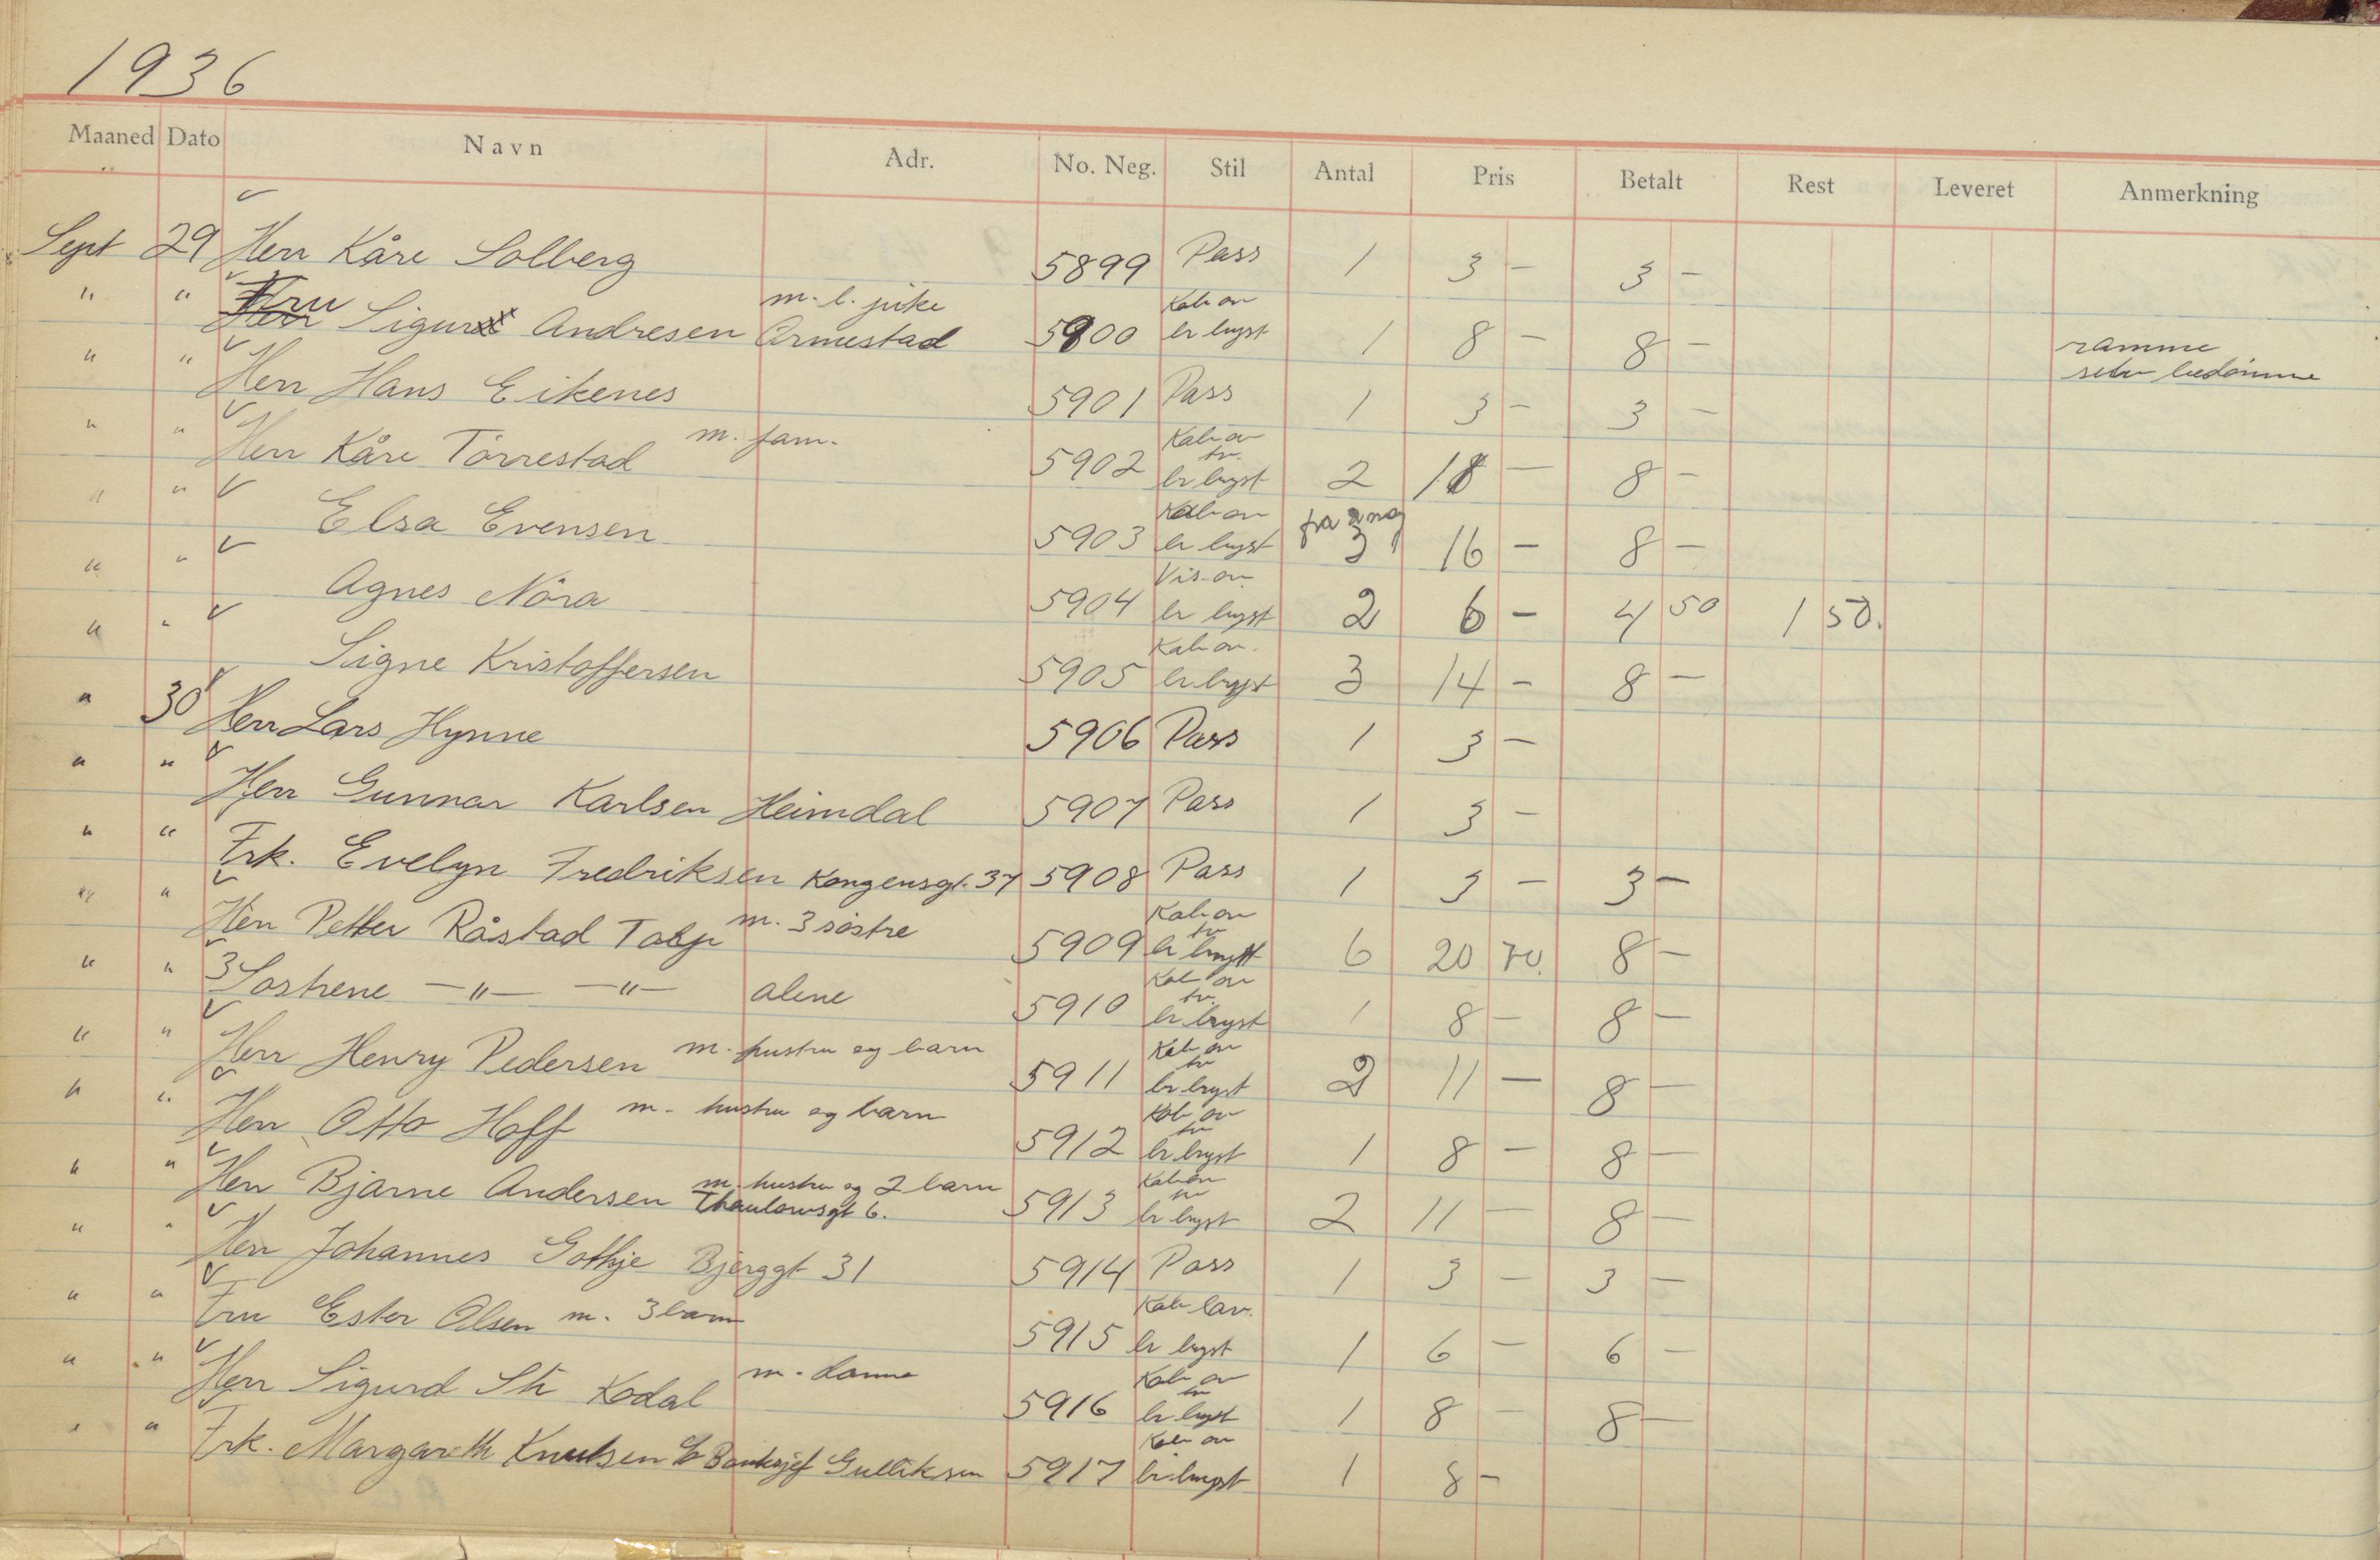 1936
Maaned Dato Navn Adr. No. Neg. Stil Antal Pris Betalt Rest Leveret Anmerkning
Sept 29 Herr Kåre Solberg 5899 Pass 1 3 — 3 —
" " Fru Sigurd Andresen m. l. pike Ormestad 5900 Kab ov br bryst 1 8 — 8 — ramme
" " Herr Hans Eikenes 5901 Pass 1 3 — 3 —
" " Herr Kåre Tørrestad m. fam. 5902 Kab ov tv. br bryst 2 18 — 8 —
" " Elsa Evensen 5903 Kab ov br bryst 3 16 — 8 —
" " Agnes Nöra 5904 Vis ov br bryst 2 6 — 4 50 1 50.
" " Signe Kristoffersen 5905 Kab ov. br bryst 3 14 — 8 —
" 30 Herr Lars Hynne 5906 Pass 1 3 —
" " Herr Gunnar Karlsen Heimdal 5907 Pass 1 3 —
" " Frk. Evelyn Fredriksen Kongensgt. 37 5908 Pass 1 3 — 3 —
" " Herr Petter Råstad m. 3 søstre 5909 Kab ov tv br bryst 6 20 70. 8 —
" " 3 Søstrene — " — — " — alene 5910 Kab ov tv. br bryst 1 8 — 8 —
" " Herr Henry Pedersen m. hustru og barn 5911 Kab ov tv br bryst 2 11 — 8 —
" " Herr Otto Hoff m. hustru og barn 5912 Kab ov tv br bryst 1 8 — 8 —
" " Herr Bjarne Andersen m. hustru og 2 barn Thaulowsgt 6. 5913 Kab ov tv br bryst 2 11 — 8 —
" " Herr Johannes Gothje Bjerggt 31 5914 Pass 1 3 — 3 —
" " Fru Ester Olsen m. 3 barn 5915 Kab lav. br bryst 1 6 — 6 —
" " Herr Sigurd Sti Kodal m. dame 5916 Kab ov tv br bryst 1 8 — 8 —
" " Frk. Margareth Knutsen Banksjef Gulliksen 5917 Kab ov br bryst 1 8 —